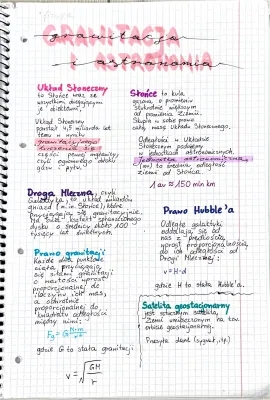 GRAWITACJA
grawitacja
i astronomia
Układ Słoneczny
to Słońce wraz ze
wszystkimi
Układ Słoneczny
powstał 4,5 miliarda lat
temu w wyniku
grawitacyjnego
części pewnej mgławicy,
czyli ogromnego obłoku
gazu i pyłu.
Słońce to kula
gazowa o promieniu
większym
od promienia Ziemi.
Skupia w sobie prawie
całą masę Układu Słonecznego.
Odległości w Układzie
Słonecznym podajemy
w jednostkach astronomicznych.
Jednostka astronomiczna
(au) to średnia odległość
Ziemi od Słońca
1 au ≈ 150 mln km
Droga Mleczna, czyli
Galaktyka, to układ miliardów
gwiazd (m.in. Słońce), które
przyciągają się grawitacyjnie.
Ma kształt
dysku o średnicy około 100
tysięcy lat świetlnych.
Prawo Hubble'a
Odległe galaktyki
oddalają się od
nas z prędkością
wprost proporcjonalną
do ich odległości od
Drogi Mlecznej:
v = H·d
gdzie H to stała Hubble'a.
Prawo grawitacji
Każde dwa punktowe
ciała przyciągają
się siłami grawitacji
o wartości wprost
proporcjonalnej do
iloczynu ich mas,
a odwrotnie
proporcjonalnej do
kwadratu odległości
między nimi:
gdzie G to stała grawitacji
v = √GM/r
Satelita geostacjonarny
jest sztucznym satelitą
Ziemi umieszczonym na tzw.
orbicie geostacjonarnej.